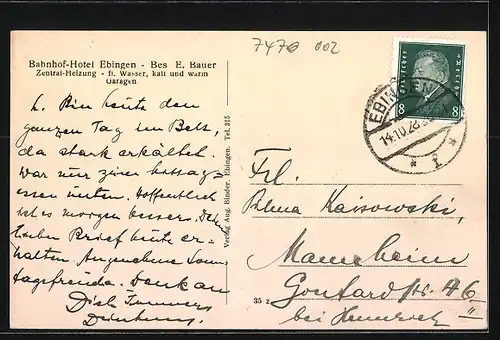 7470 002
Bahnhof-Hotel Ebingen - Bes E. Bauer
Zentral-Heizung - fl. Wasser, kalt und warm
Garagen
L. Bin heute den
ganzen Tag im Bett,
da stark erkältet.
War nur zum Mittag-
essen unten. Hoffentlich
ist es morgen besser. Dein
lieber Brief heute er-
halten. Angenehme Sonn-
tagsfreude. Denk an
Dich immer
Verlag Aug. Binder, Ebingen. Tel. 315
DEUTSCHES REICH
8 8
EBINGEN
14.10.28
* 1 *
Frl.
Mannheim
Gontardstr. 46 II
bei Heinrich
35